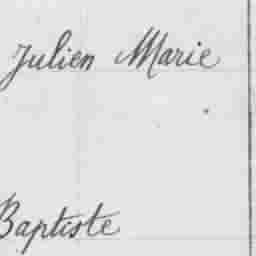 Julien Marie
Baptiste